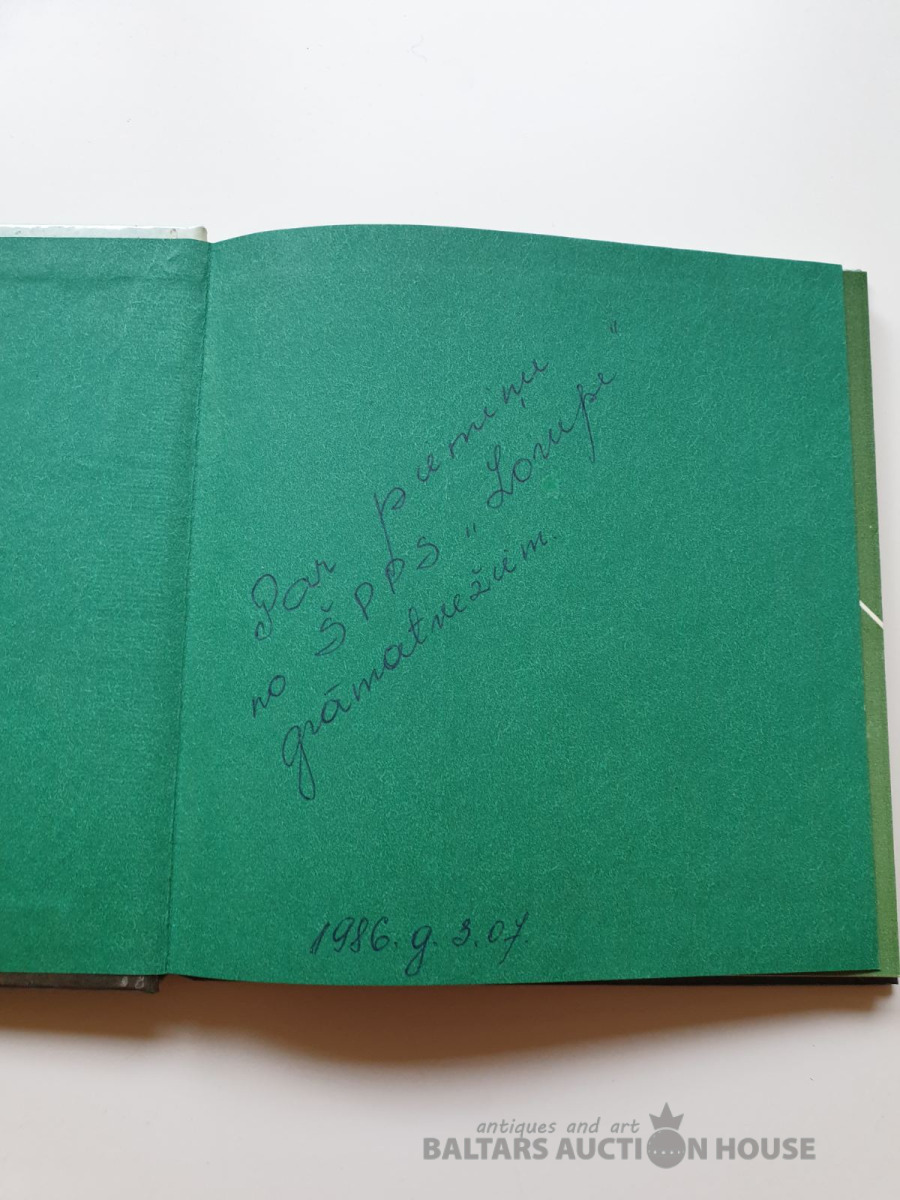 Par piemiņu
no ŠPPS „Lorupe"
grāmatnežiem.
1986. g. 3.07.
antiques and art
BALTARS AUCTION HOUSE